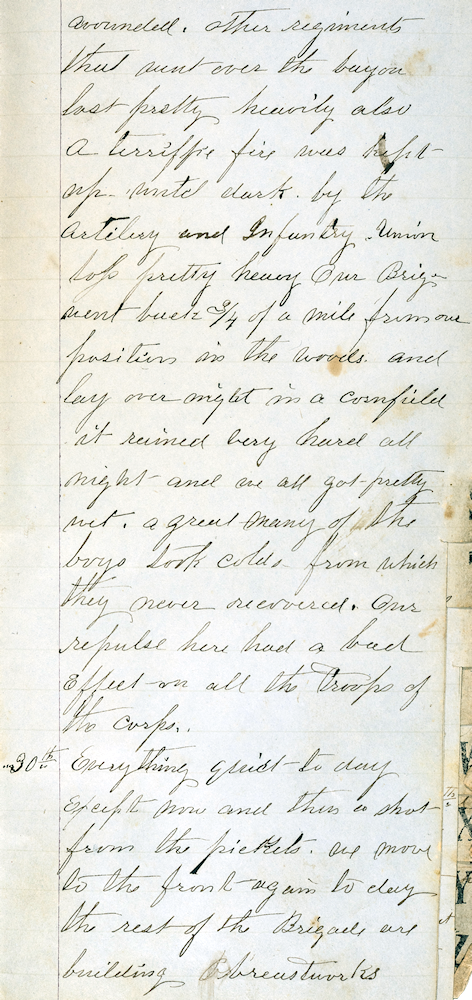 wounded. other regiments
that went over the bayou
lost pretty heavily also
A terriffic fire was kept
up until dark. by the
Artilery and Infantry. Union
loss pretty heavy Our Brig-
went back 3/4 of a mile from our
position in the woods. and
lay over night in a cornfield
it rained very hard all
night and we all got pretty
wet. a great many of the
boys took colds from which
they never recovered. Our
repulse here had a bad
Effect on all the troops of
the corps..
"30th Everything quiet to day
Except now and then a shot
from the pickets. we move
to the front again to day
the rest of the Brigade are
building breastworks